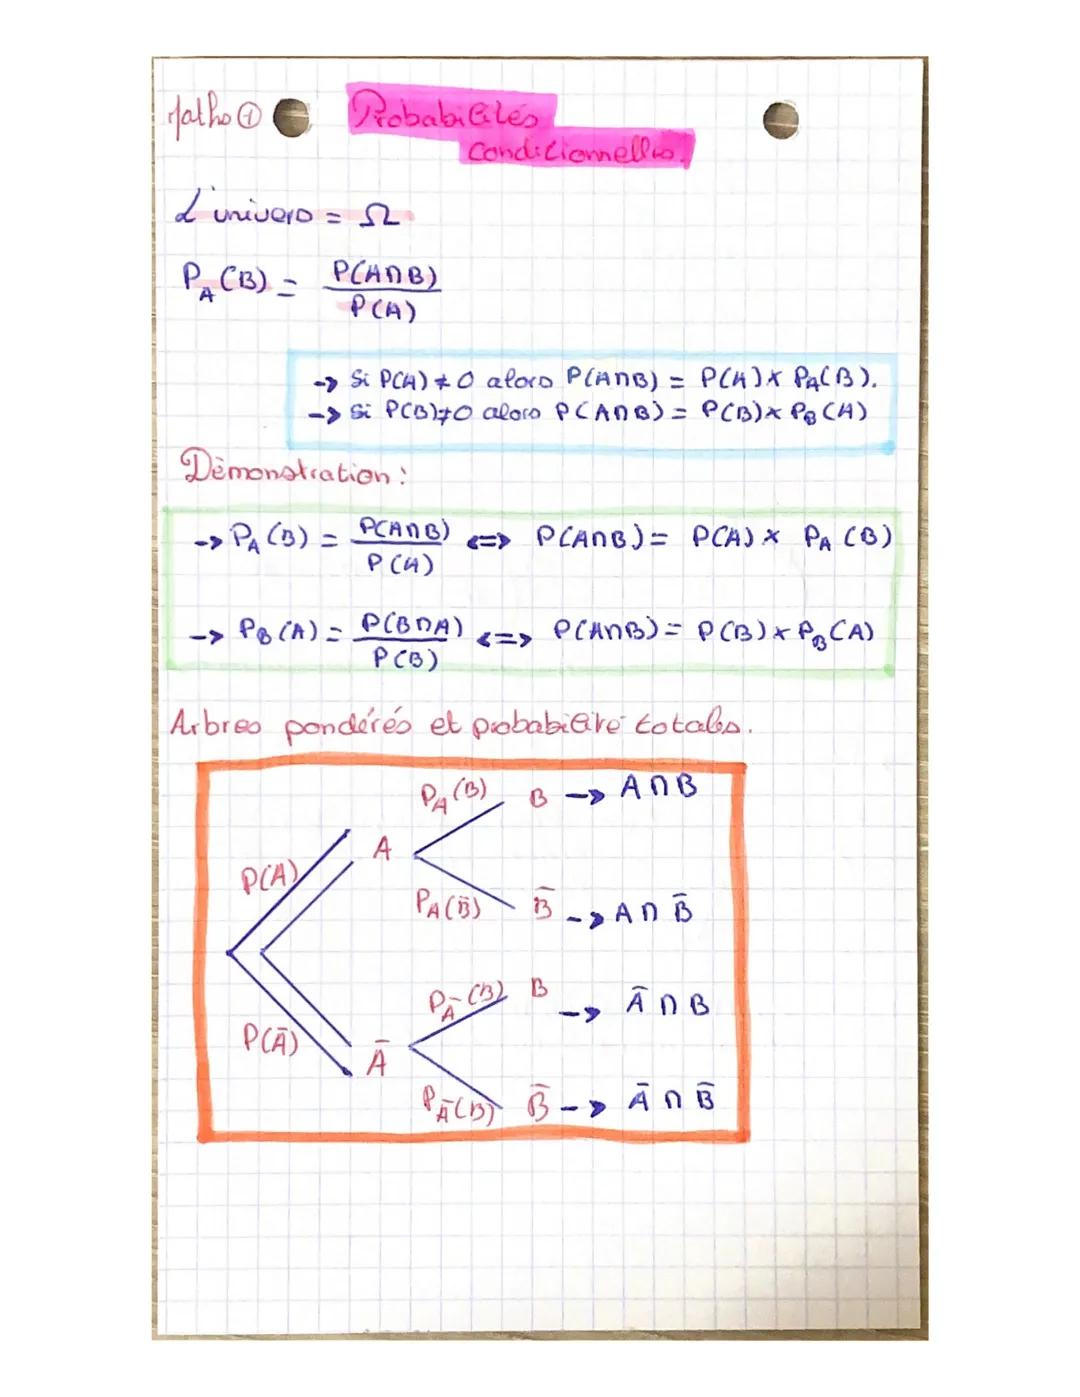 Maths ①
Probabilités
conditionnelles.
L'univers = Ω
P_A(B) = P(A∩B) / P(A)
-> Si P(A) ≠ 0 alors P(A∩B) = P(A) x P_A(B).
-> Si P(B) ≠ 0 alors P(A∩B) = P(B) x P_B(A)
Démonstration :
-> P_A(B) = P(A∩B) / P(A) <=> P(A∩B) = P(A) x P_A(B)
-> P_B(A) = P(B∩A) / P(B) <=> P(A∩B) = P(B) x P_B(A)
Arbres pondérés et probabilité totales.
P_A(B) B -> A∩B
P(A) A
P_A(B̄) B̄ -> A∩B̄
P_Ā(B) B -> Ā∩B
P(Ā) Ā
P_Ā(B̄) B̄ -> Ā∩B̄